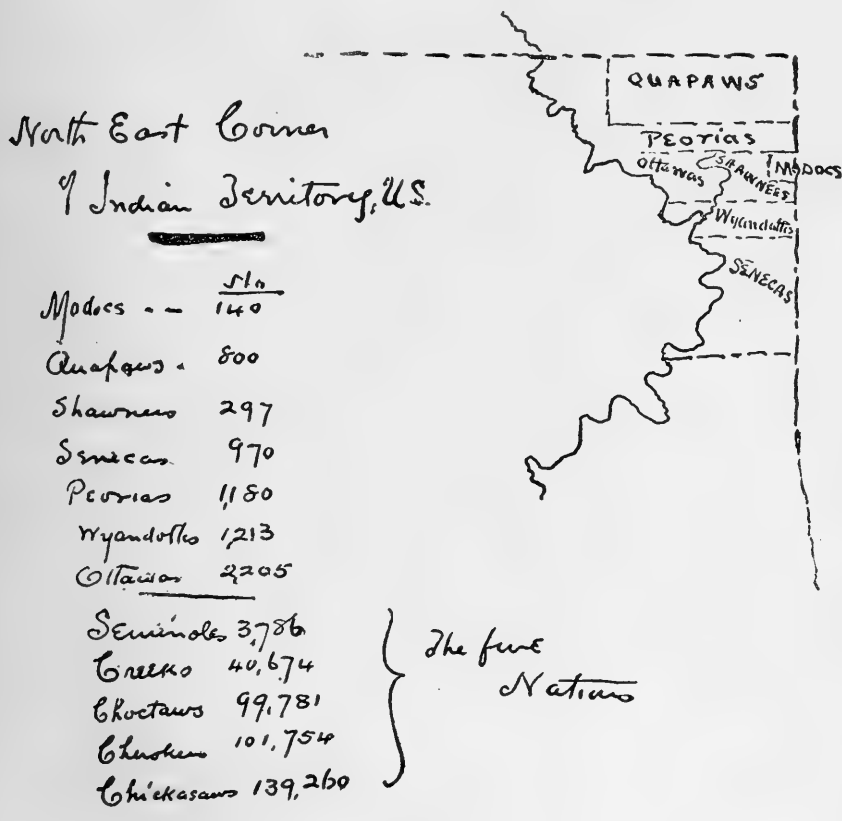 North East Corner
of Indian Territory, U.S.
Modocs -- 140
Quapaws. 800
Shawnees 297
Senecas 970
Peorias 1,180
Wyandotts 1,213
Ottawas 2,205
Seminoles 3,786
Creeks 40,674
Choctaws 99,781
Cherokees 101,754
Chickasaws 139,260
The five
Nations
QUAPAWS
PEORIAS
Ottawas
SHAWNEES
MODOCS
Wyandotts
SENECAS